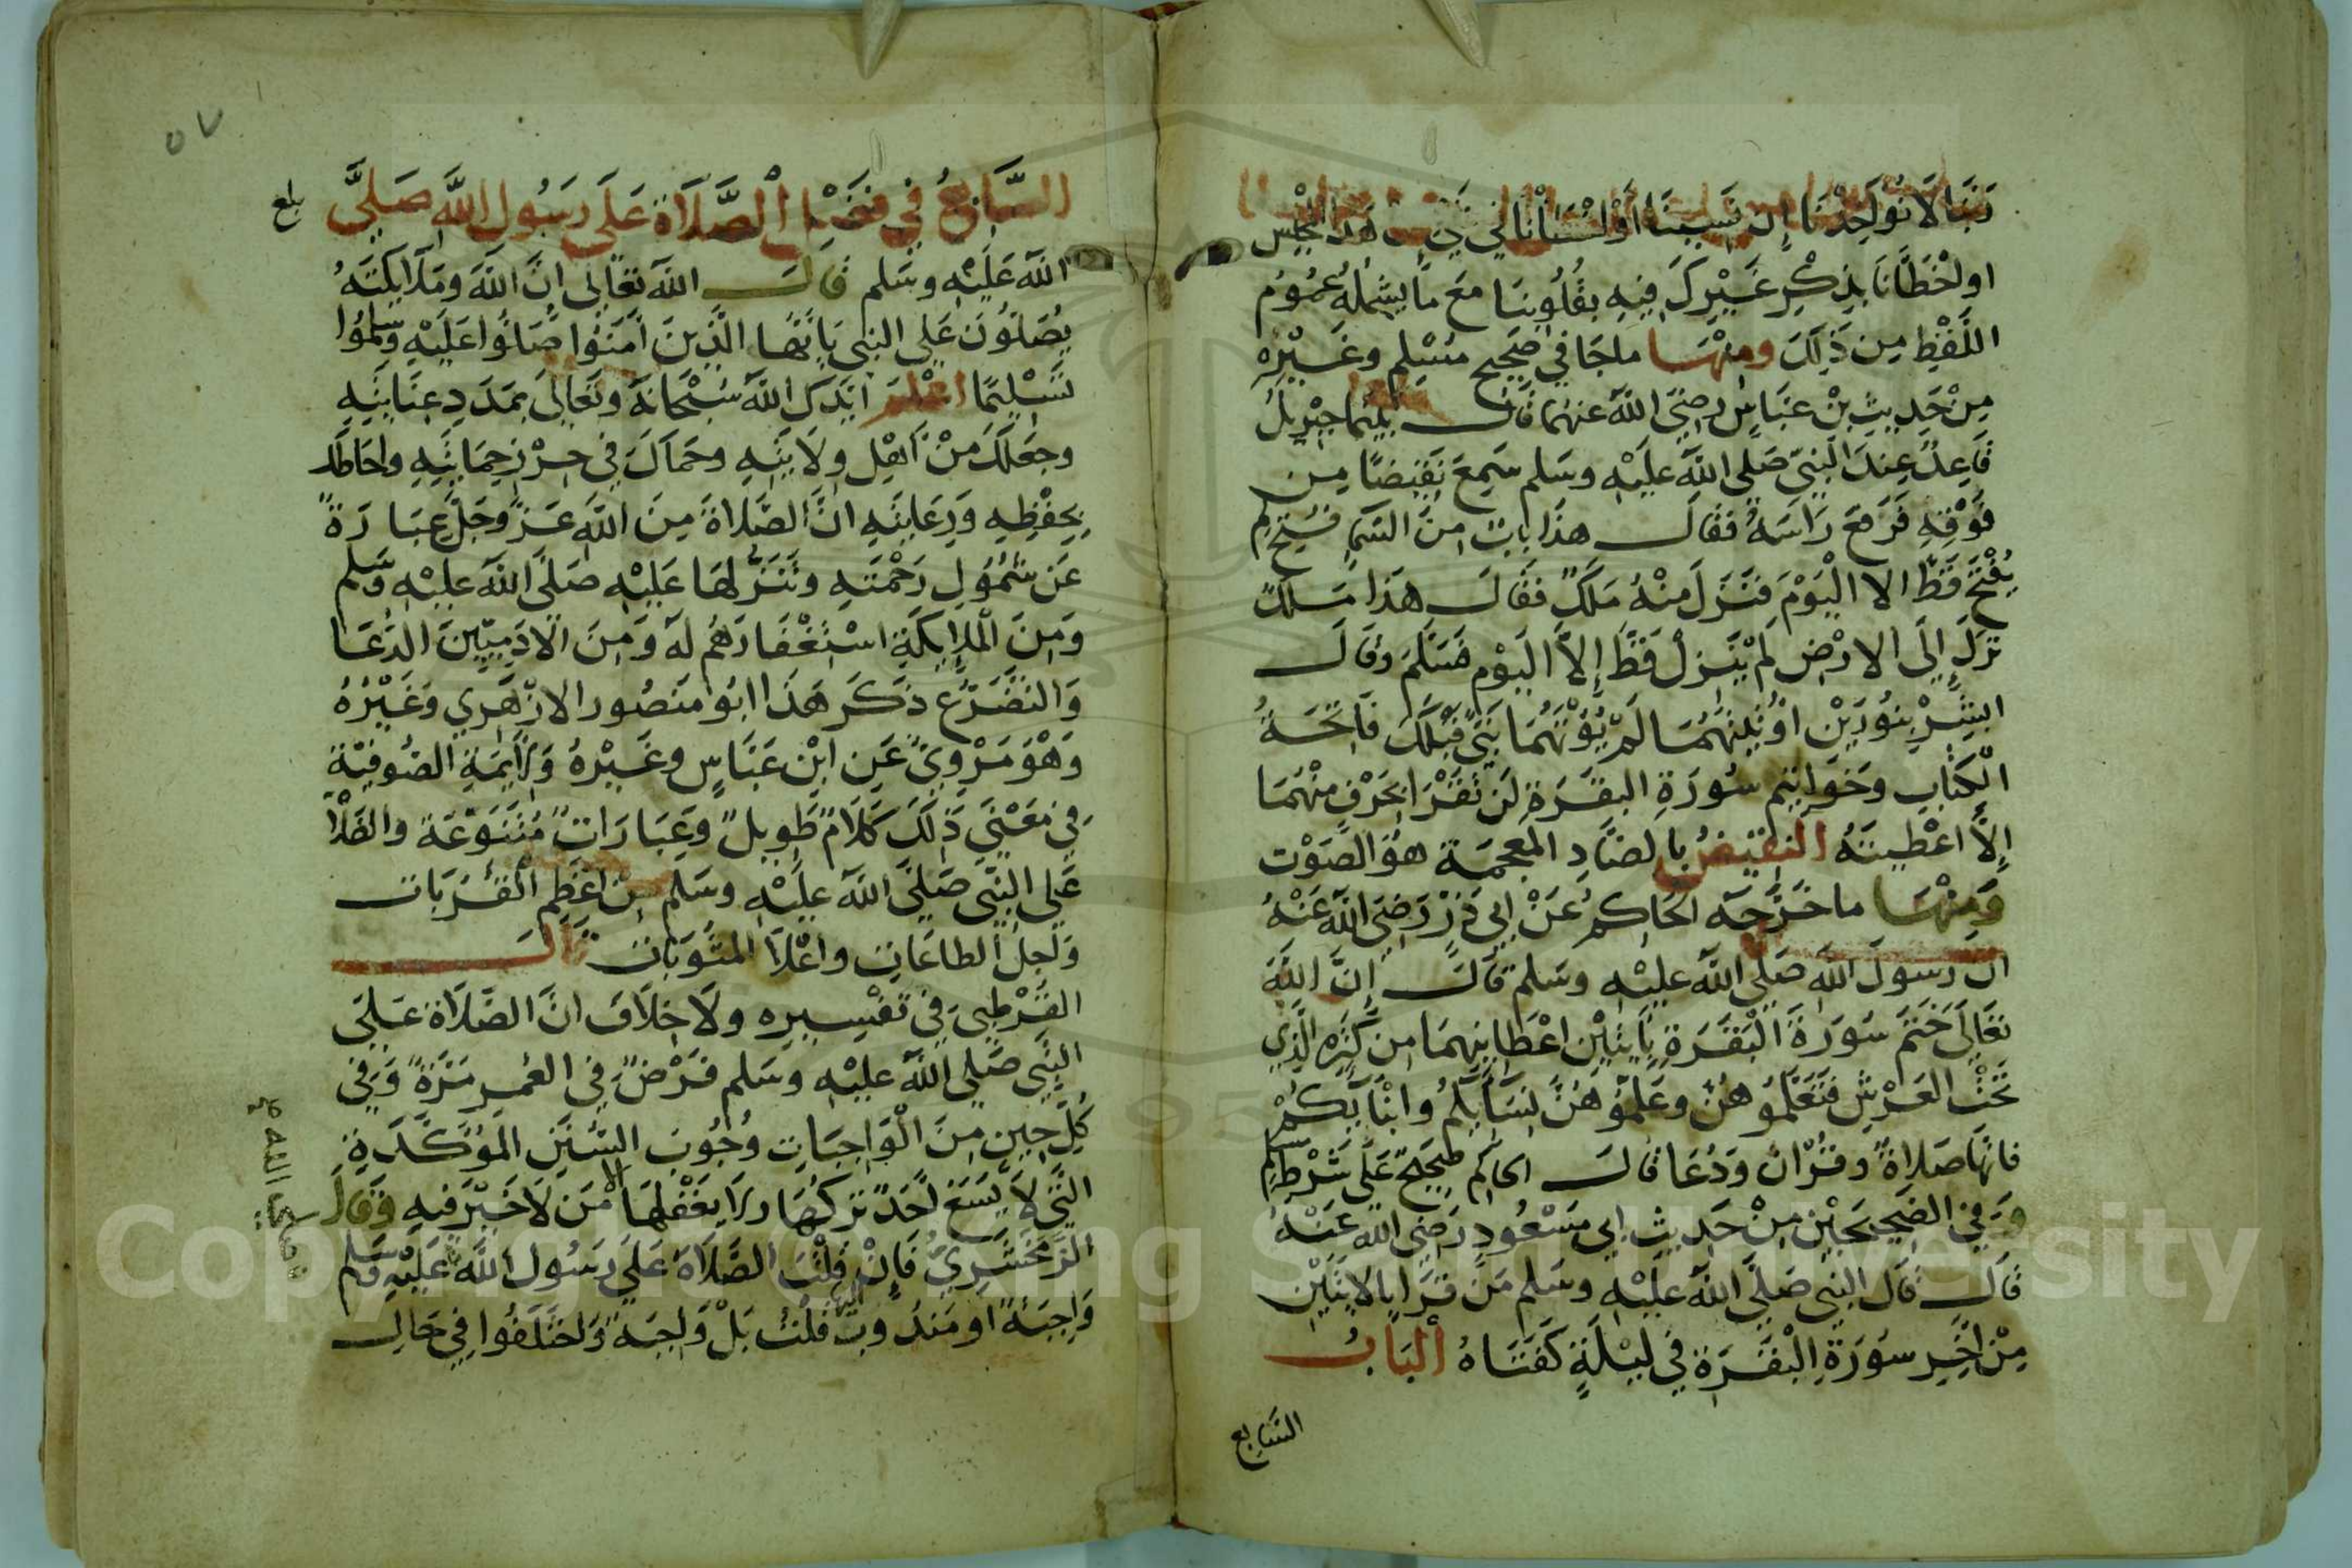 رَبَّنَا لَا تُؤَاخِذْنَا إِن نَسِينَا أَوْ أَخْطَأْنَا أي نسيناك هذا الجنس
او اخْطَأنَا بِذِكْرِ غَيْرِكَ فِيهِ بِقُلُوبِنَا مَعَ مَا يَشْمَلُهُ عُمُوم
اللَّفْظِ مِن ذَلِكَ ومِنْهَا ما جَا في صَحِيح مُسْلِم وغَيْرِه
مِنْ حَدِيثِ بْنِ عَبَّاسٍ رضِيَ اللَّه عنهُمَا قَال بينما جبريل
قَاعِدٌ عِندَ النبِيّ صَلي اللَّه عَلَيْهِ وسَلم سَمِعَ نَقِيضًا مِن
فَوْقِهِ فَرَفعَ رَاسَهُ فقَال هذَا بابٌ مِنَ السَّمَا فُتِحَ لم
يُفْتَحْ قَطّ الا الْيَوْمَ فنَزَلَ مِنْهُ مَلَكٌ فَقَال هَذَا مَلَكٌ
نَزَلَ إِلَى الارْضِ لَمْ يَنْزِلْ قَطُّ إِلَّا الْيَوْم فسَلَّمَ وقَالَ
ابشِرْ بِنُورَيْنِ اوُتِيتَهُمَا لَمْ يُؤْتَهُمَا نَبِيٌّ قَبْلَكَ فَاتِحَةُ
الْكِتَابِ وَخَوَاتِيم سُورَةِ البقَرَةِ لَن تَقْرَا بحَرْفٍ مِنْهُمَا
إِلَّا اعْطِيتَهُ النقيضُ بِالضَّادِ المعجمَة هوَ الصَّوْت
وَمِنْهَا ما خَرَّجَه الحَاكِمُ عَنْ ابي ذَرّ رَضِيَ اللَّه عَنْهُ
ان رَسُولَ اللَّه صَلَّى اللَّه عليْهِ وسَلم قَالَ إِنَّ اللَّهَ
تعَالَى خَتَمَ سُورَةَ الْبَقَرَةِ بِآيَتَيْنِ اعْطَانِيهِمَا مِن كَنْزِهِ الَّذِي
تَحْتَ العَرْشِ فَتَعَلَّمُوهُنَّ وعَلِّمُوهُنَّ نِسَآيَكُمْ وابْنَآيَكُمْ
فانهَا صَلاةٌ وقُرْانٌ وَدُعَا قَالَ الحاكِم صَحِيحٌ عَلَى شَرْطِ مُسْلِم
وَفي الصَّحِيحَيْنِ مِنْ حَدِيثِ ابي مَسْعُودٍ رَضِيَ الله عَنْهُ
قَالَ قَال النبي صَلَّى اللَّه عَلَيْهِ وسَلم مَنْ قَرَا بِالايَتَيْنِ
مِنْ اخِرِ سُورَةِ الْبَقَرَة فِي لَيْلَةٍ كَفَتَاهُ الْبَابُ
السَّابع
٥٧
بلغ
السَّابِعُ فِي فَضْلِ الصَّلَاة عَلَى رَسُول اللَّه صَلَّى
اللَّه عَلَيْهِ وسَلم قَالَ اللَّه تعَالى انَّ اللَّهَ ومَلَايكَتَهُ
يُصَلُّونَ عَلى النبي يَايُّهَا الَّذِينَ آمَنُوا صَلُّوا عَلَيْهِ وسَلِّمُوا
تَسْلِيمًا اعْلَمْ ايَّدَكَ اللَّه سُبْحَانَهُ وتَعَالَى بِمَدَدِ عِنَايَتِهِ
وجعَلَكَ مِنْ اهْلِ وِلَايَتِهِ وحَمَاكَ في حِرْزِ حِمَايَتِهِ واحَاطَكَ
بِحِفْظِهِ وَرِعَايَتِهِ انَّ الصَّلَاةَ مِنَ اللَّهِ عَزَّ وَجَلَّ عِبَارَةٌ
عَن شُمُولِ رَحْمَتِهِ وتَنَزُّلِهَا عَلَيْهِ صَلَّى اللَّه عَلَيْهِ وَسَلم
وَمِنَ الْمَلَايِكَةِ اسْتِغْفَارُهُم لَه وَمِنَ الْآدَمِيِّينَ الدُّعَا
وَالتَضَرُّع ذَكَرَ هَذَا ابُو مَنصُور الازْهَرِي وَغَيْرُهُ
وَهْوَ مَرْوِيٌّ عَنِ ابْنِ عَبَّاسٍ وغَيْرِهُ وَلِايِمَةِ الصُوفِيَّة
فِي مَعْنَى ذَلِكَ كَلَامٌ طَوِيلٌ وَعِبَارَاتٌ مُتَنَوِّعَة والصَّلَاة
عَلى النَّبي صَلَّى اللَّه عَلَيْهِ وسَلم مِنْ اعْظَمِ الْقُرُبَات
وَاجَلّ الطاعَاتِ واعْلَا المثُوبَات قَالَ
القُرْطبي فِي تفْسِيرِه ولَا خِلَافَ انَّ الصَّلَاة عَلَى
النَّبي صَلى اللَّه عليْهِ وسَلم فَرْضٌ فِي العُمرِ مَرَّةً وَفي
كُلّ حِينٍ مِنَ الْوَاجِبَاتِ وُجُوبَ السُّنَنِ المَؤَكَّدَةِ
الَّتي لَا يَسَعُ احَدٌ تركُهَا ولَا يَغْفُلهَا الا مَن لَا خَيْرَ فِيهِ وَقَالَ
الزَّمَخْشَرِيّ فَإِنْ قُلْتَ الصَّلَاة عَلَى رَسُول اللَّه عَلَيْهِ وَسَلم
صلى الله
وَاجِبَةٌ او مَندُوبٌ اليها قلْتُ بَلْ وَاجِبَة وَاختَلَفُوا فِي حَال